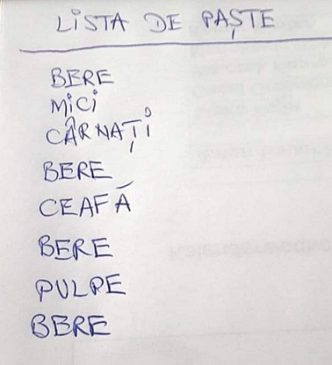 LISTA DE PAȘTE
BERE
MICI
CÂRNAȚI
BERE
CEAFĂ
BERE
PULPE
BERE